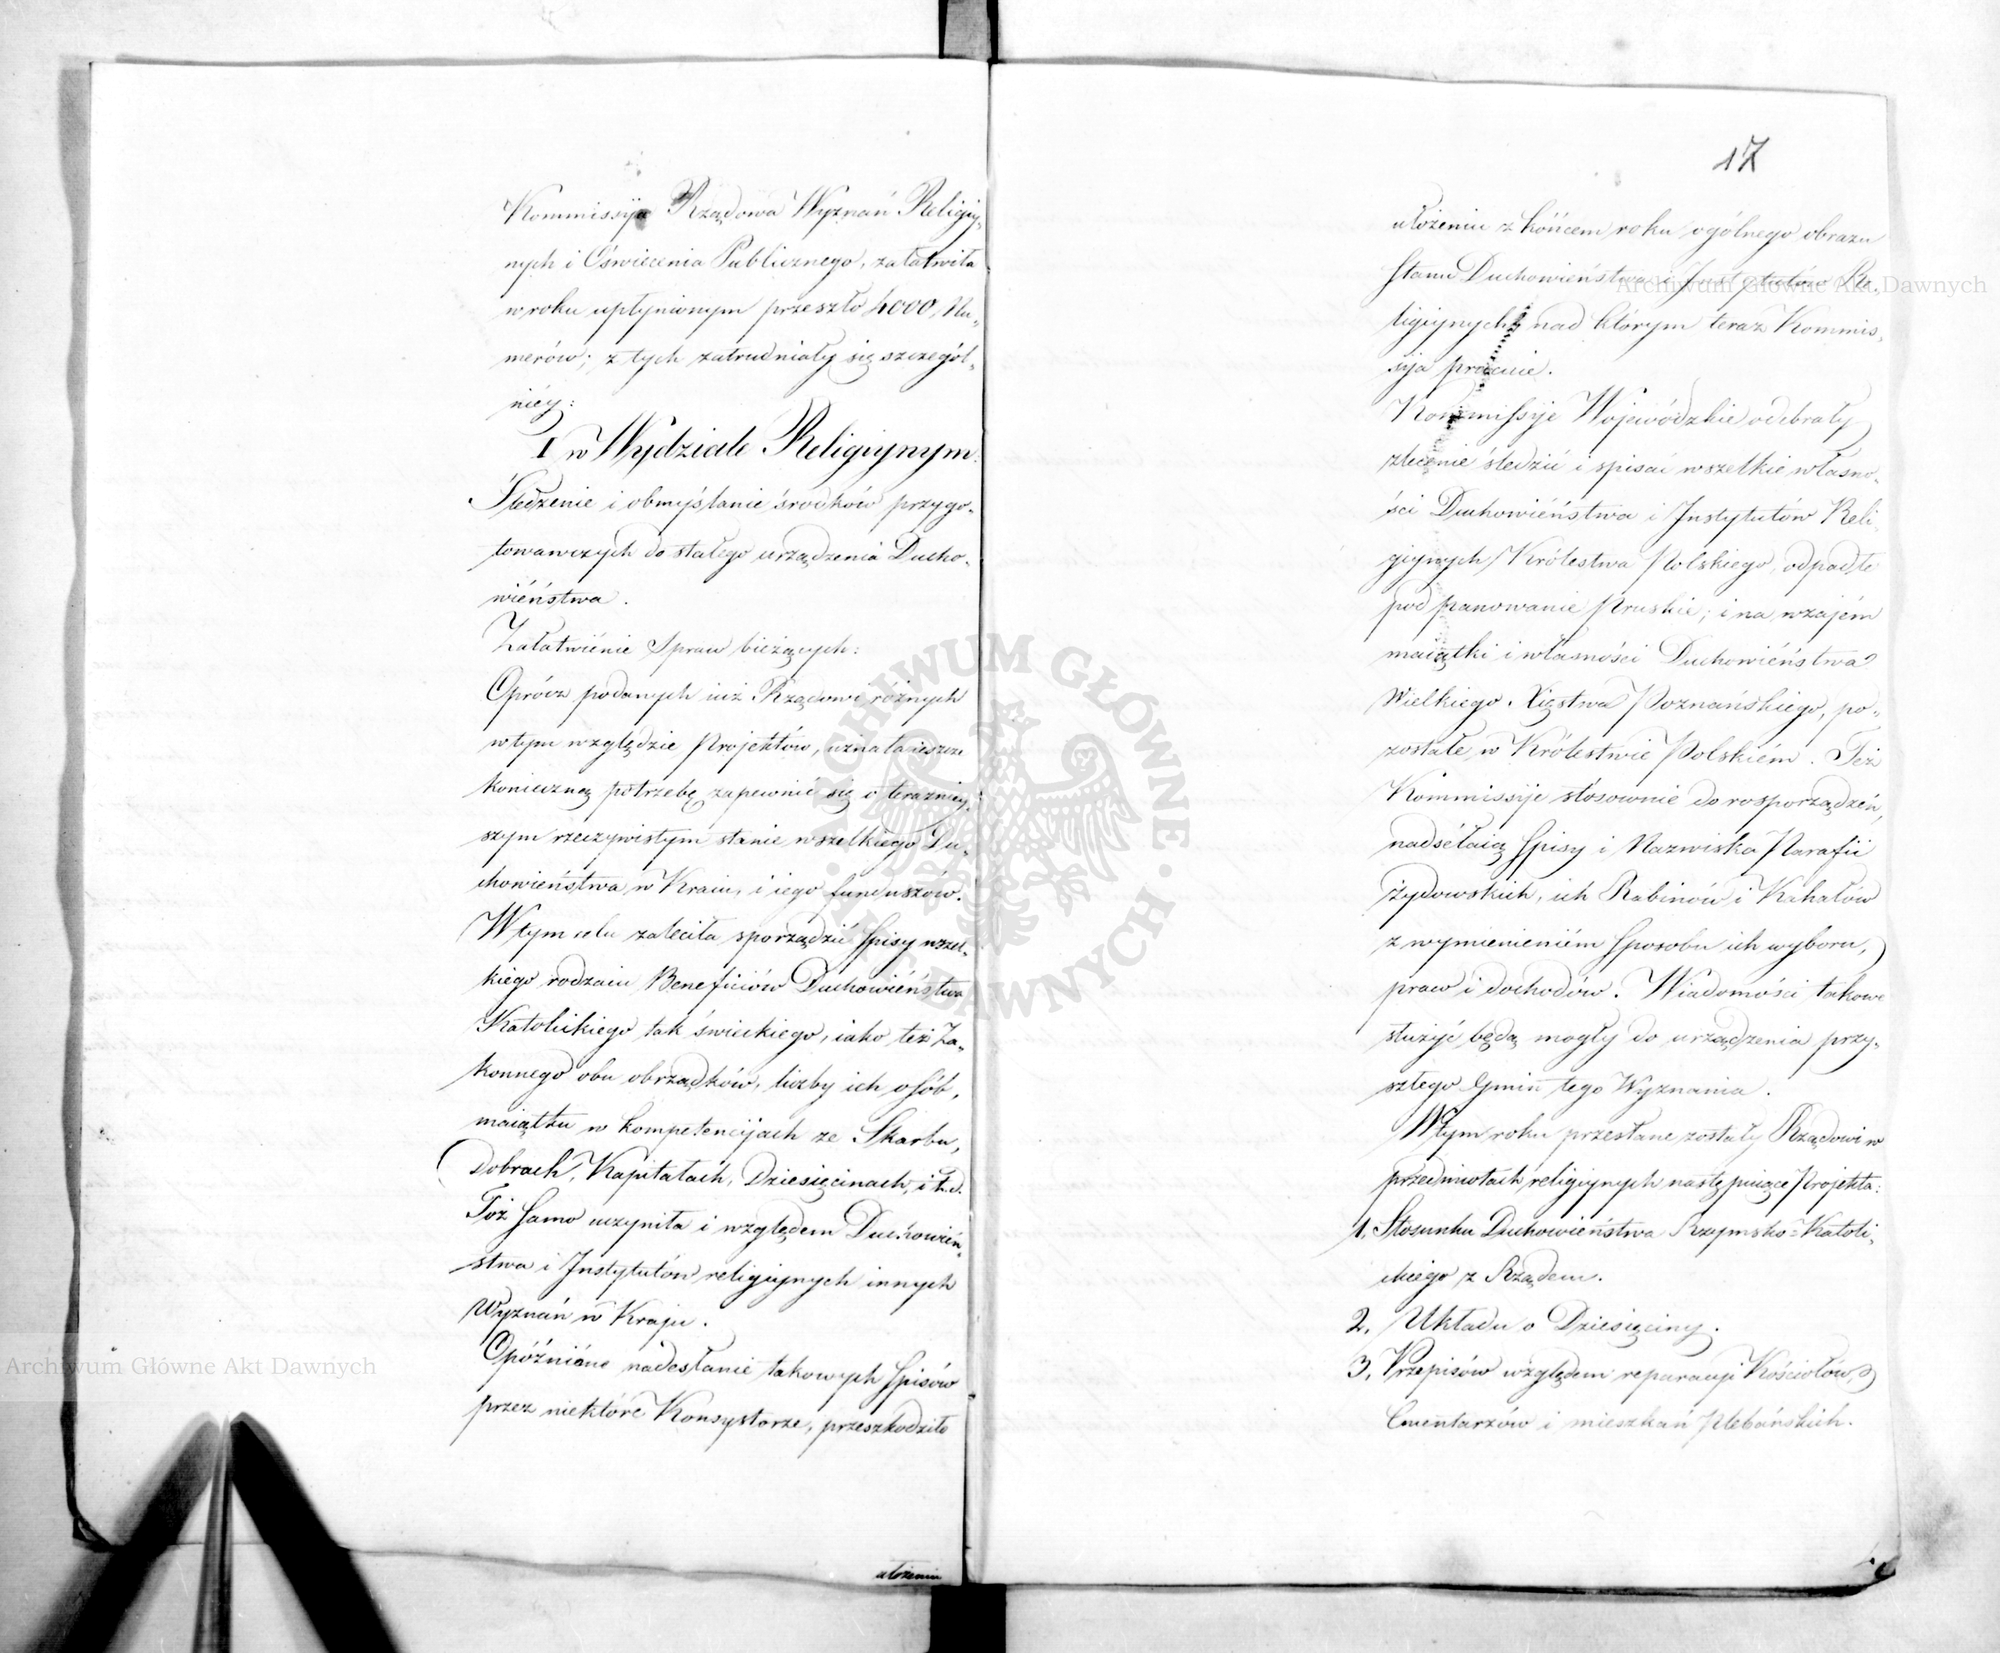 Kommissyja Rządowa Wyznań Religiy-
nych i Oświecenia Publicznego, załatwiła
w roku upłynionym przeszło 4000, Nu-
merów; z tych zatrudniały się szczegól-
niéy:
I w Wydziale Religiynym.
Śledzenie i obmyślanie środków przygo-
towawczych do stałego urządzenia Ducho-
wiéństwa.
Załatwiénie Spraw bieżących:
Oprócz podanych iuż Rządowi różnych
w tym względzie Projektów, uznała ieszcze
konieczną potrzebę zapewnić się o teraźniey-
szym rzeczywistym stanie wszelkiego Du-
chowiéństwa w Kraiu, i iego funduszów.
W tym celu zaleciła sporządzić Spisy wszel-
kiego rodzaiu Beneficiów Duchowiéństwa
Katolickiego tak świeckiego, iako też Za-
konnego obu obrządków, liczby ich osób,
maiątku w kompetencyjach ze Skarbu,
Dobrach, Kapitałach, Dziesięcinach, i t.d.
Toż samo uczyniła i względem Duchowień-
stwa i Instytutów religiynych innych
Wyznań w Kraju.
Opóźnióne nadesłanie takowych Spisów
przez niektóre Konsystorze, przeszkodziło
ułożeniu
17
ułożeniu z końcem roku ogólnego obrazu
Stanu Duchowieństwa i Instytutów Re-
ligiynych, nad którym teraz Kommis-
syja pracuie.
Kommissyje Wojewódzkie odebrały
zlecenie śledzić i spisać wszelkie własno-
ści Duchowiéństwa i Instytutów Reli-
giynych Królestwa Polskiego, odpadłe
pod panowanie Pruskie; i na wzajém
maiątki i własności Duchowiéństwa
Wielkiego Xięstwa Poznańskiego, po-
zostałe w Królestwie Polskiém. Też
Kommissyje stósownie do rosporządzeń,
nadséłaią Spisy i Nazwiska Parafii
Żydowskich, ich Rabinów i Kahałów
z wymienieniém Sposobu ich wyboru,
praw i dochodów. Wiadomości takowe
służyć będą mogły do urządzenia przy-
szłego Gmin tego Wyznania.
W tym roku przesłane zostały Rządowi w
przedmiotach religiynych następuiące Projekta:
1. Stosunku Duchowieństwa Rzymsko-Katoli-
ckiego z Rządem.
2. Układu o Dziesięciny.
3. Przepisów względem reparacyi Kościołów,
Cmentarzów i mieszkań Plebańskich.
Archiwum Główne Akt Dawnych
Archiwum Główne Akt Dawnych
ARCHIWUM GŁÓWNE AKT DAWNYCH